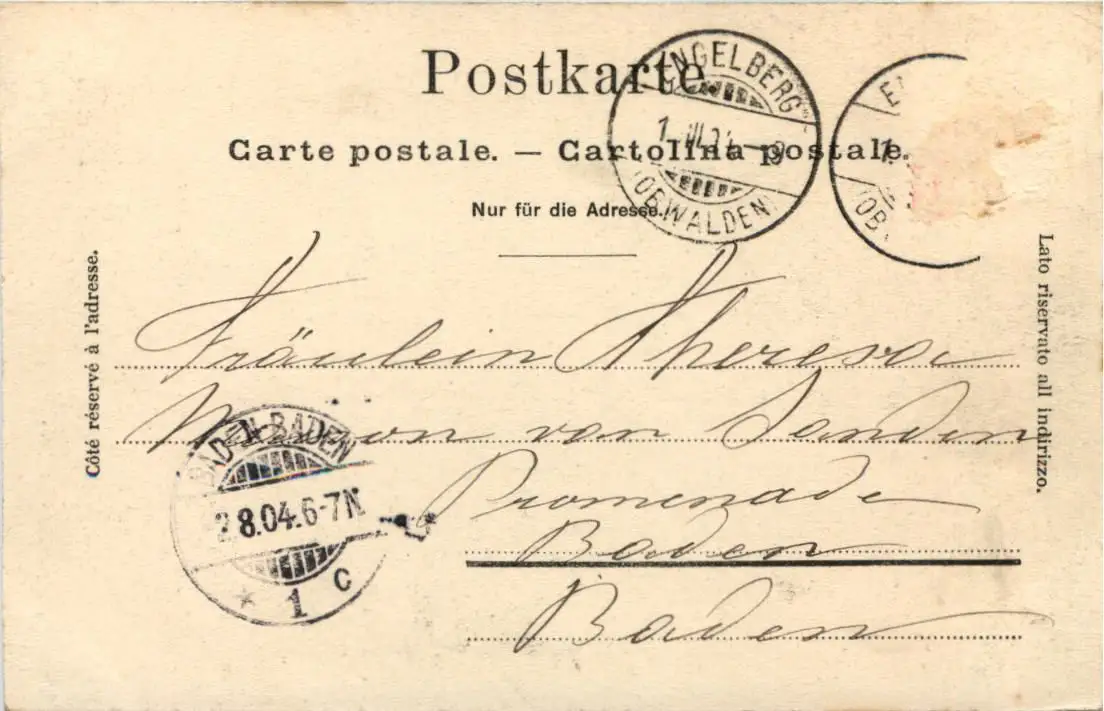 Postkarte
Carte postale. — Cartolina postale.
Nur für die Adresse.
Côté réservé à l'adresse.
Lato riservato all indirizzo.
ENGELBERG
(OBWALDEN)
E
1.
(OB
Fräulein Theresa
von Sanden
Promenade
Baden
Baden
BADEN-BADEN
2.8.04.6-7N
* 1 c